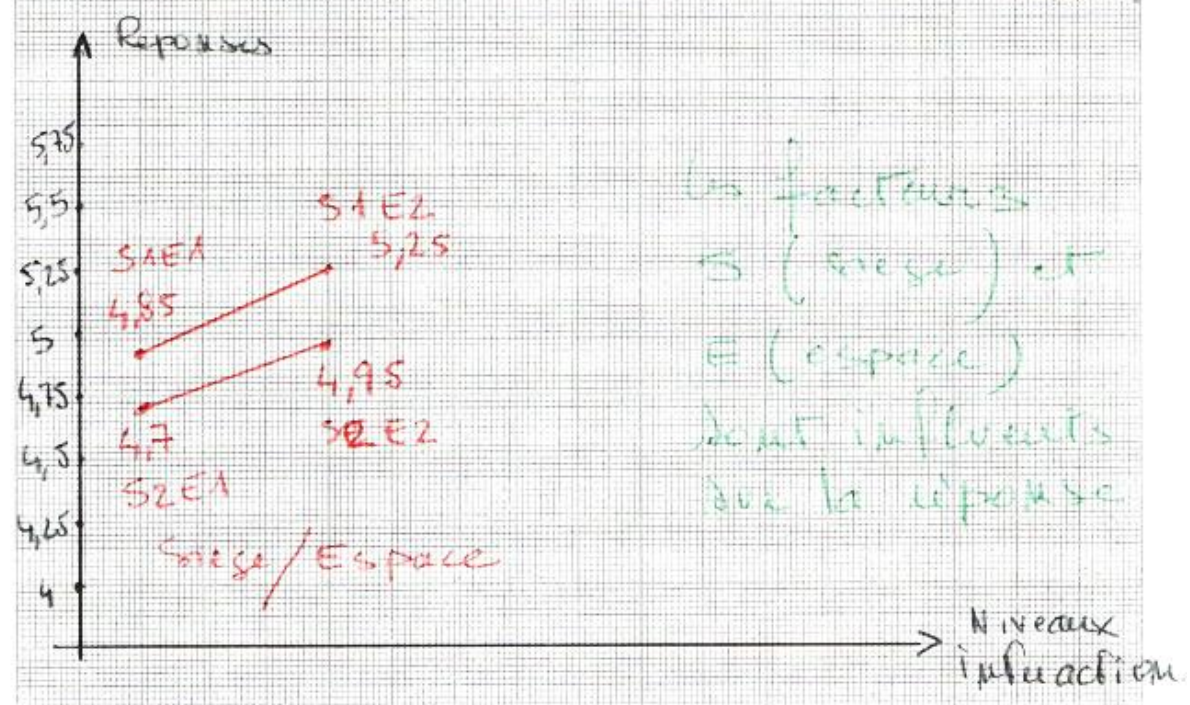 Réponses
5,75
5,5
5,25
5
4,75
4,5
4,25
4
S1E1
4,85
S1E2
5,25
4,7
S2E1
4,95
S2E2
Siege/Espace
Les facteurs
S (siege) et
E (espace)
sont influents
sur la réponse
Niveaux
interaction